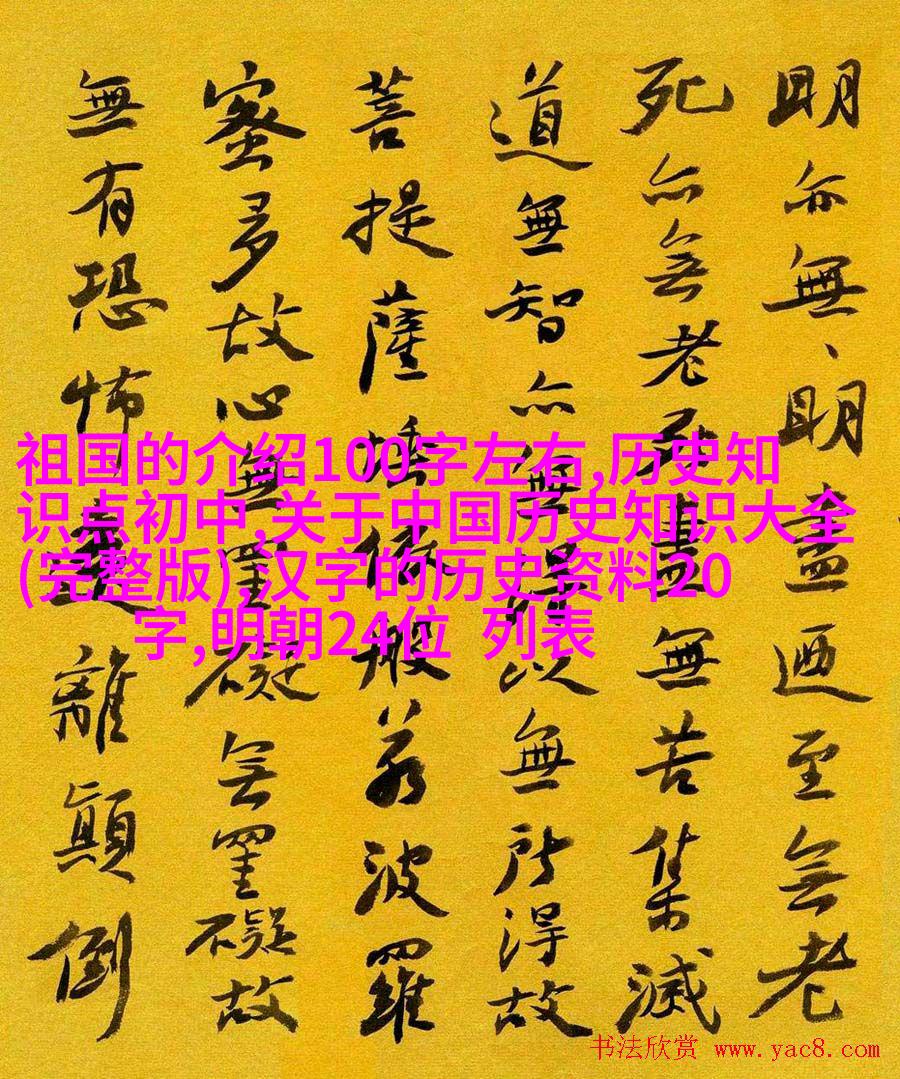 明亦無、明盡迺至無老
死亦無老死盡無苦集滅
道無智亦無得以無所得故
菩提薩埵依般若波羅
蜜多故心無罣礙無罣礙故
無有恐怖遠離顛倒
祖国的介绍100字左右,历史知
识点初中,关于中国历史知识大全
(完整版),汉字的历史资料20
字,明朝24位 列表
书法欣赏 www.yac8.com